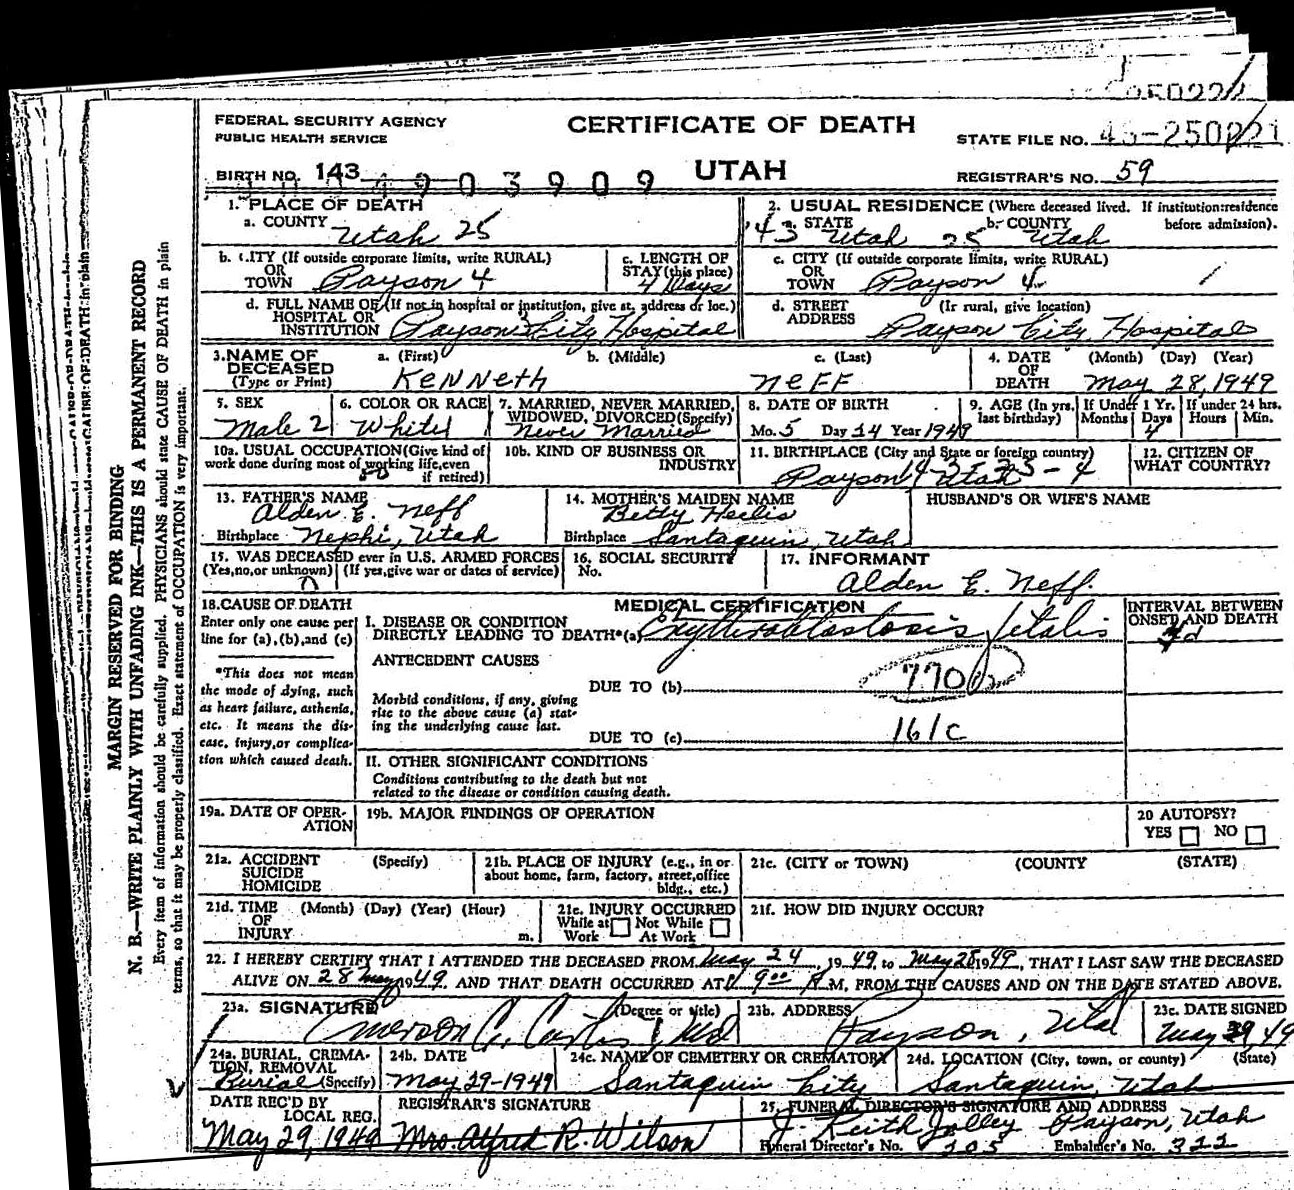 FEDERAL SECURITY AGENCY
PUBLIC HEALTH SERVICE
CERTIFICATE OF DEATH
STATE FILE NO.
BIRTH NO. 143 4903909
UTAH
REGISTRAR'S NO. 59
1. PLACE OF DEATH
a. COUNTY Utah 25
2. USUAL RESIDENCE (Where deceased lived. If institution:residence before admission).
43 a. STATE Utah 25 b. COUNTY Utah
b. CITY (If outside corporate limits, write RURAL) OR TOWN Payson 4
c. LENGTH OF STAY (this place) 4 Days
c. CITY (If outside corporate limits, write RURAL) OR TOWN Payson 4
d. FULL NAME OF (If not in hospital or institution, give st. address or loc.) HOSPITAL OR INSTITUTION Payson City Hospital
d. STREET ADDRESS (If rural, give location) Payson City Hospital
3. NAME OF DECEASED (Type or Print)
a. (First) Kenneth
b. (Middle)
c. (Last) Neff
4. DATE OF DEATH (Month) (Day) (Year) May 28, 1949
5. SEX Male 2
6. COLOR OR RACE White
7. MARRIED, NEVER MARRIED, WIDOWED, DIVORCED (Specify) Never Married
8. DATE OF BIRTH Mo. 5 Day Year 1949
9. AGE (In yrs. last birthday) If Under 1 Yr. Months Days 4 If under 24 hrs. Hours Min.
10a. USUAL OCCUPATION (Give kind of work done during most of working life, even if retired)
10b. KIND OF BUSINESS OR INDUSTRY
11. BIRTHPLACE (City and State or foreign country) Payson Utah 43-25-4
12. CITIZEN OF WHAT COUNTRY?
13. FATHER'S NAME Alden E. Neff
Birthplace Nephi, Utah
14. MOTHER'S MAIDEN NAME Betty
Birthplace Santaquin, Utah
HUSBAND'S OR WIFE'S NAME
15. WAS DECEASED ever in U.S. ARMED FORCES
(Yes, no, or unknown) (If yes, give war or dates of service)
16. SOCIAL SECURITY No.
17. INFORMANT Alden E. Neff.
18. CAUSE OF DEATH
Enter only one cause per line for (a), (b), and (c)
MEDICAL CERTIFICATION
INTERVAL BETWEEN ONSET AND DEATH
I. DISEASE OR CONDITION DIRECTLY LEADING TO DEATH*(a) Erythroblastosis fetalis 4d
*This does not mean the mode of dying, such as heart failure, asthenia, etc. It means the disease, injury, or complication which caused death.
ANTECEDENT CAUSES
Morbid conditions, if any, giving rise to the above cause (a) stating the underlying cause last.
DUE TO (b) 770
DUE TO (c) 161c
II. OTHER SIGNIFICANT CONDITIONS
Conditions contributing to the death but not related to the disease or condition causing death.
19a. DATE OF OPERATION
19b. MAJOR FINDINGS OF OPERATION
20 AUTOPSY?
YES NO
21a. ACCIDENT SUICIDE HOMICIDE (Specify)
21b. PLACE OF INJURY (e.g., in or about home, farm, factory, street, office bldg., etc.)
21c. (CITY or TOWN) (COUNTY (STATE)
21d. TIME OF INJURY (Month) (Day) (Year) (Hour) m.
21e. INJURY OCCURRED While at Work Not While At Work
21f. HOW DID INJURY OCCUR?
22. I HEREBY CERTIFY THAT I ATTENDED THE DECEASED FROM May 24, 1949, to May 28 1949, THAT I LAST SAW THE DECEASED
ALIVE ON 28 May 1949. AND THAT DEATH OCCURRED AT 9 00 M, FROM THE CAUSES AND ON THE DATE STATED ABOVE.
23a. SIGNATURE (Degree or title) Md
23b. ADDRESS Payson, Utah
23c. DATE SIGNED May 49
24a. BURIAL, CREMATION, REMOVAL (Specify) Burial
24b. DATE May 29-1949
24c. NAME OF CEMETERY OR CREMATORY Santaquin City
24d. LOCATION (City, town, or county) (State) Santaquin, Utah
DATE REC'D BY LOCAL REG. May 29, 1949
REGISTRAR'S SIGNATURE Mrs. Alfred R. Wilson
25. FUNERAL DIRECTOR'S SIGNATURE AND ADDRESS J. Keith Jolley Payson, Utah
Funeral Director's No. 205 Embalmer's No. 322
MARGIN RESERVED FOR BINDING
N. B.—WRITE PLAINLY WITH UNFADING INK—THIS IS A PERMANENT RECORD
Every item of information should be carefully supplied. PHYSICIANS should state CAUSE OF DEATH in plain
terms, so that it may be properly classified. Exact statement of OCCUPATION is very important.